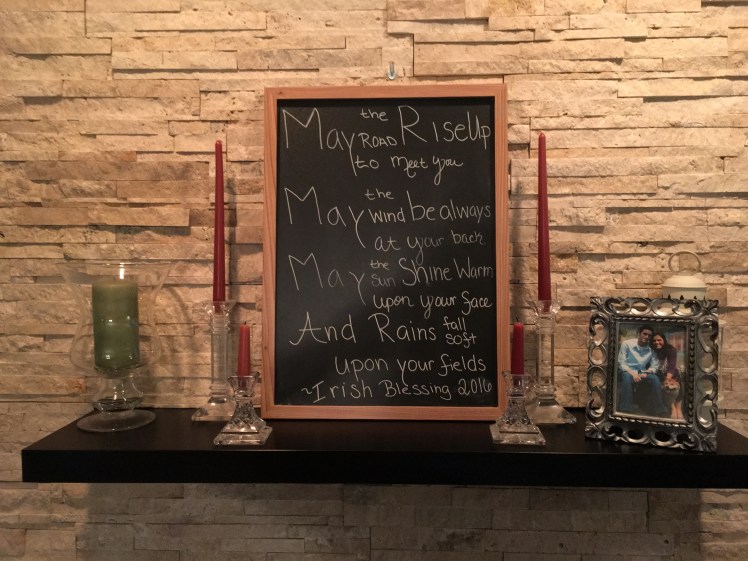 May the ROAD RiseUp
to meet you
May the wind be always
at your back
May the sun Shine Warm
upon your face
And Rains fall soft
upon your fields
~Irish Blessing 2016